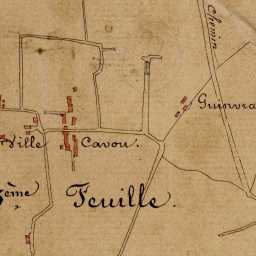 Chemin
Guinvra
Ville Cavou.
3ème Feuille.